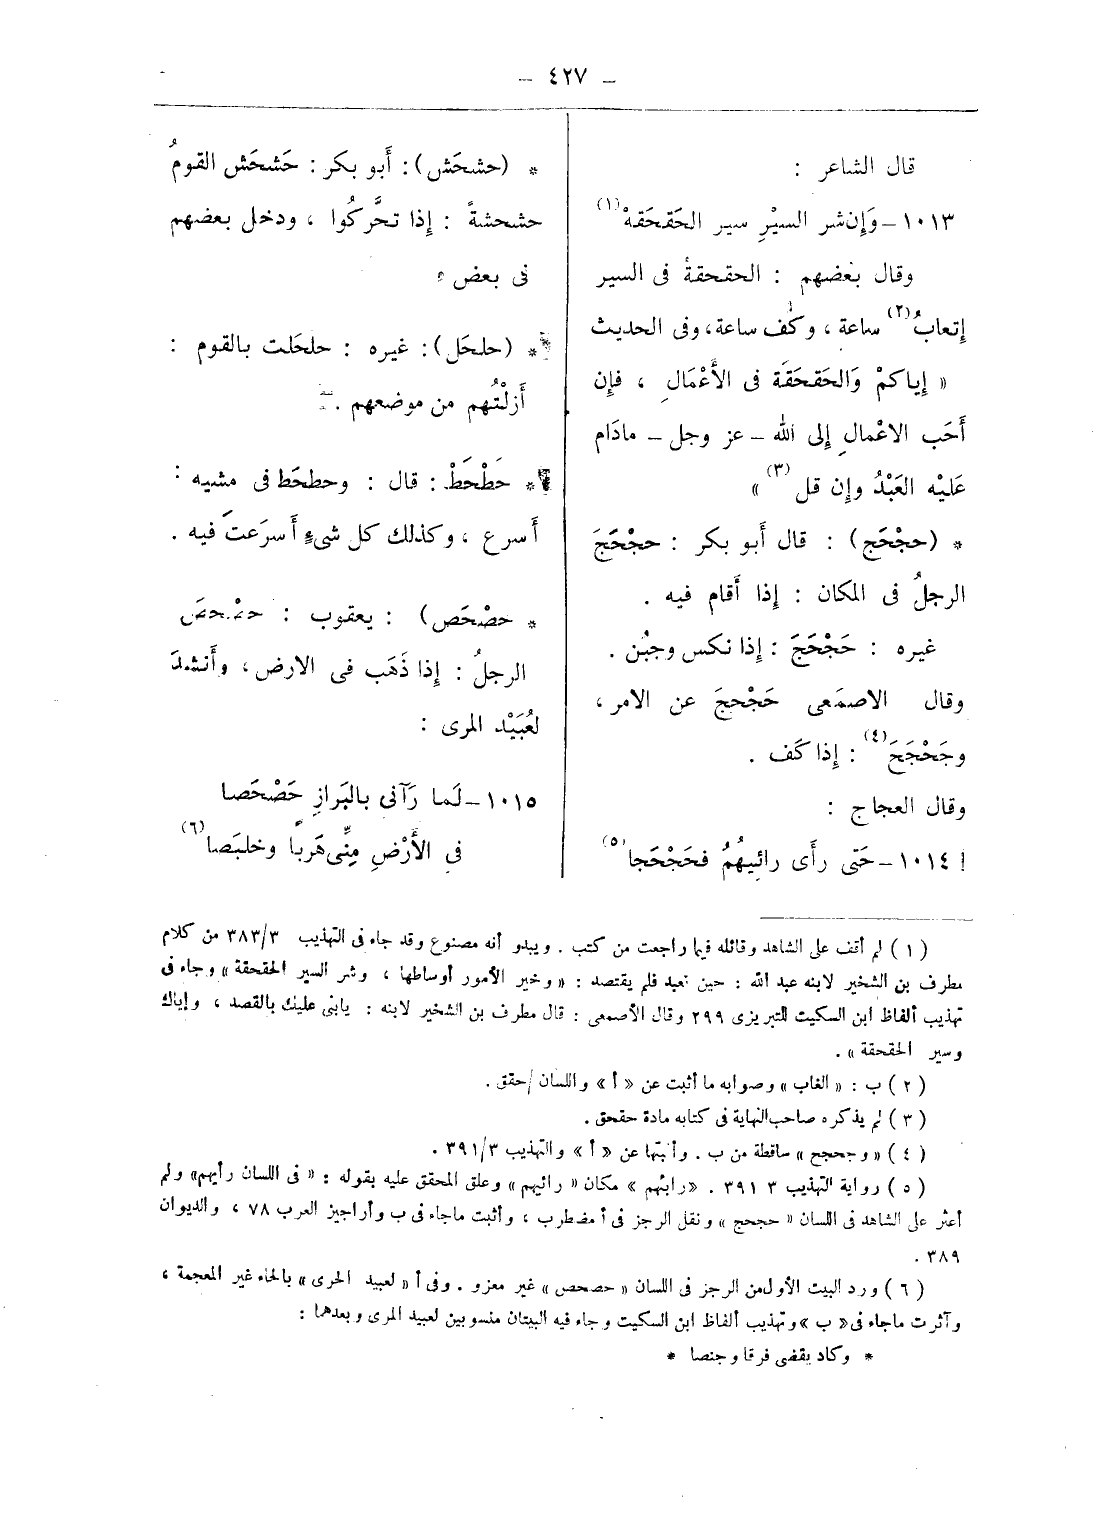 – ٤٢٧ –
قال الشاعر :
١٠١٣ – وَإِن شر السيْرِ سير الحَقحَقهْ (١)
وقال بعْضهم : الحقحقةُ فى السير
إتعابُ (٢) ساعة ، وكُف ساعة ، وفى الحديث
« إياكمْ وَالحَقحَقَة فى الأَعْمَالِ ، فإِن
أَحَب الاعْمالِ إلى الله – عز وجل – مادَام
عَليْه العَبْدُ وإن قل (٣) »
* (حجْحَج) : قال أَبو بكر : حجْحَجَ
الرجلُ فى المكان : إذا أَقام فيه .
غيره : حَجْحَجَ : إذا نكس وجبُن .
وقال الاصمَعى حَجْحجَ عن الامر ،
وجَحْجَحَ (٤) : إذا كَف .
وقال العجاج :
١٠١٤ – حَتى رأَى رائيهُمُ فحَجْحَجا (٥)
* (حشحَش) : أَبو بكر : حَشحَش القومُ
حشحشةً : إذا تحَّركُوا ، ودخل بعضهم
فى بعض .
* (حلحَل) : غيره : حلحَلت بالقوم :
أَزلْتُهم من موضعهم .
* حَطْحَطْ : قال : وحطحَط فى مشيه :
أَسرع ، وكذلك كل شىءٍ أَسرَعتَ فيه .
* حصْحَص) : يعقوب : حصْحصَ
الرجلُ : إذا ذَهَب فى الارض ، وأَنشدَ
لعُبَيْد المرى :
١٠١٥ – لَما رَآنى بالبَرازِ حَصْحَصا
فى الأَرْضِ مِنِّى هَربا وخلبَصا (٦)
(١) لم أقف على الشاهد وقائله فيما راجعت من كتب . ويبدو أنه مصنوع وقد جاء فى التهذيب ٣٨٣/٣ من كلام
مطرف بن الشخير لابنه عبد الله : حين تعبد فلم يقتصد : « وخير الأمور أوساطها ، وشر السير الحقحقة » وجاء فى
تهذيب ألفاظ ابن السكيت للتبريزى ٢٩٩ وقال الأصمعى : قال مطرف بن الشخير لابنه : يابنى عليك بالقصد ، وإياك
وسير الحقحقة » .
(٢) ب : « الغاب » وصوابه ما أثبت عن « أ » واللسان /حقق .
(٣) لم يذكره صاحب النهاية فى كتابه مادة حقحق .
(٤) « وجحجح » ساقطة من ب . وأثبتها عن « أ » والتهذيب ٣٩١/٣ .
(٥) رواية التهذيب ٣ ٣٩١ . « رابئهم » مكان « رائيهم » وعلق المحقق عليه بقوله : « فى اللسان رأيهم » ولم
أعثر على الشاهد فى اللسان « حجحج » ونقل الرجز فى أ مضطرب ، وأثبت ماجاء فى ب وأراجيز العرب ٧٨ ، والديوان
٣٨٩ .
(٦) ورد البيت الأول من الرجز فى اللسان « حصحص » غير معزو . وفى أ « لعبيد الحرى » بالحاء غير المعجمة ،
وآثرت ماجاء فى « ب » وتهذيب ألفاظ ابن السكيت وجاء فيه البيتان منسوبين لعبيد المرى وبعدهما :
* وكاد يقضى فرقا وجنصا *